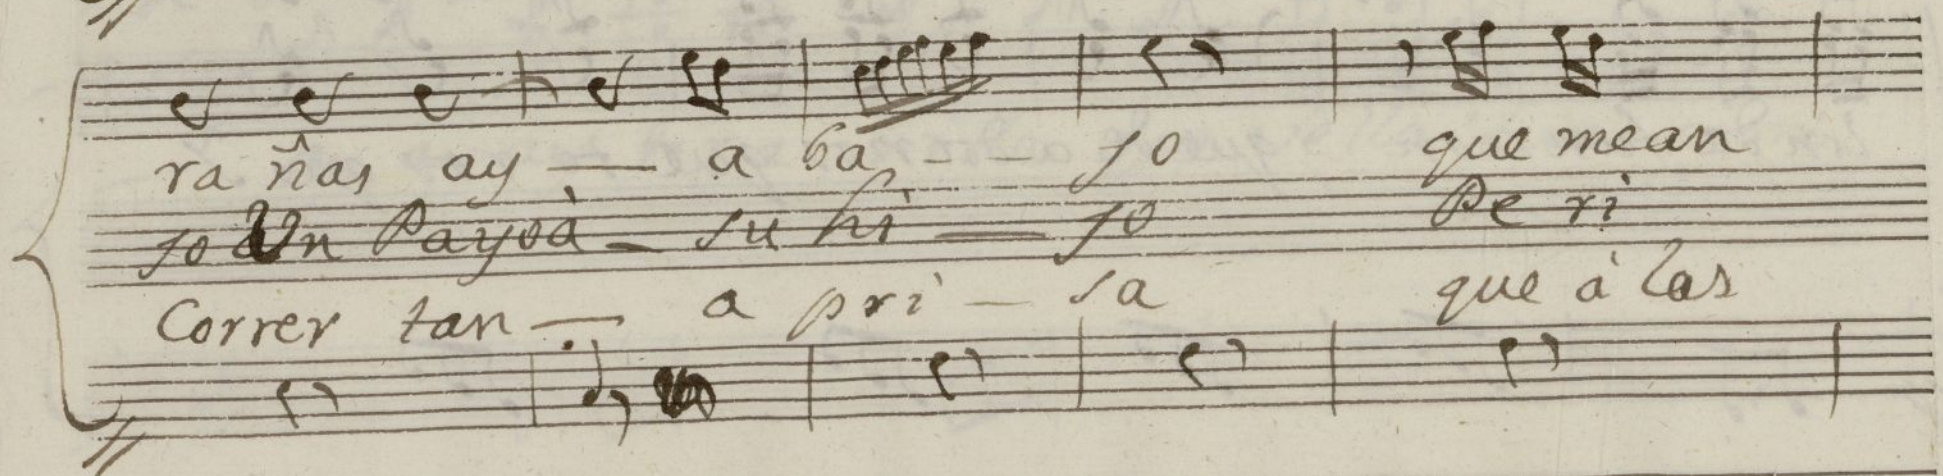 ra ñas ay — a ba - - - jo que mean
jo Un Payoà — su hi — jo Pe ri
Correr tan — a pri — sa que à las